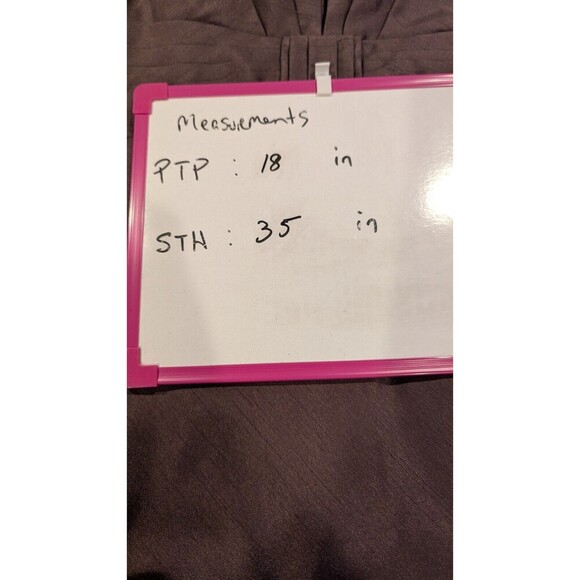 Measurements
PTP : 18 in
STH : 35 in